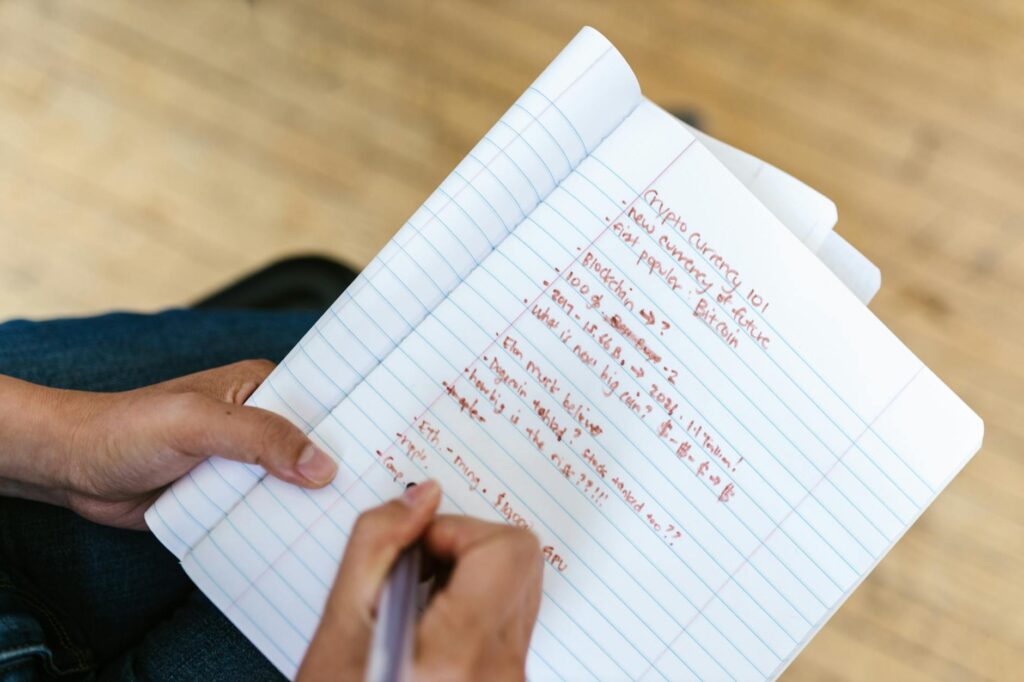 Crypto Currency 101
- new currency of future
- first popular : Bitcoin
- Blockchain → ?
- 100 of
- 2017 - 15.66B. → 2021 : 1.1 Trillion!
- What is new big coin? $ - $ - $ → $
- Elon musk believer
- Dogecoin tanked? stock tanked too??
- how big is the risk???!!!
- Eth. - mining.
GPU
- ripple.